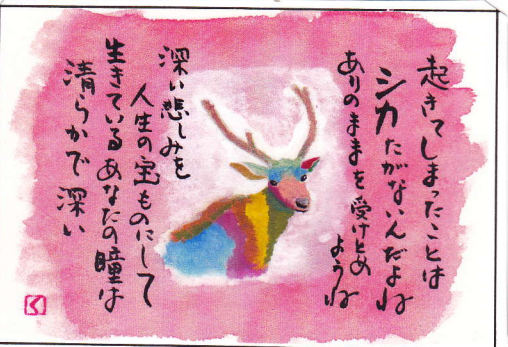 起きてしまったことは
シカたがないんだよね
ありのままを受けとめ
ようね
深い悲しみを
人生の宝ものにして
生きているあなたの瞳は
清らかで深い
く